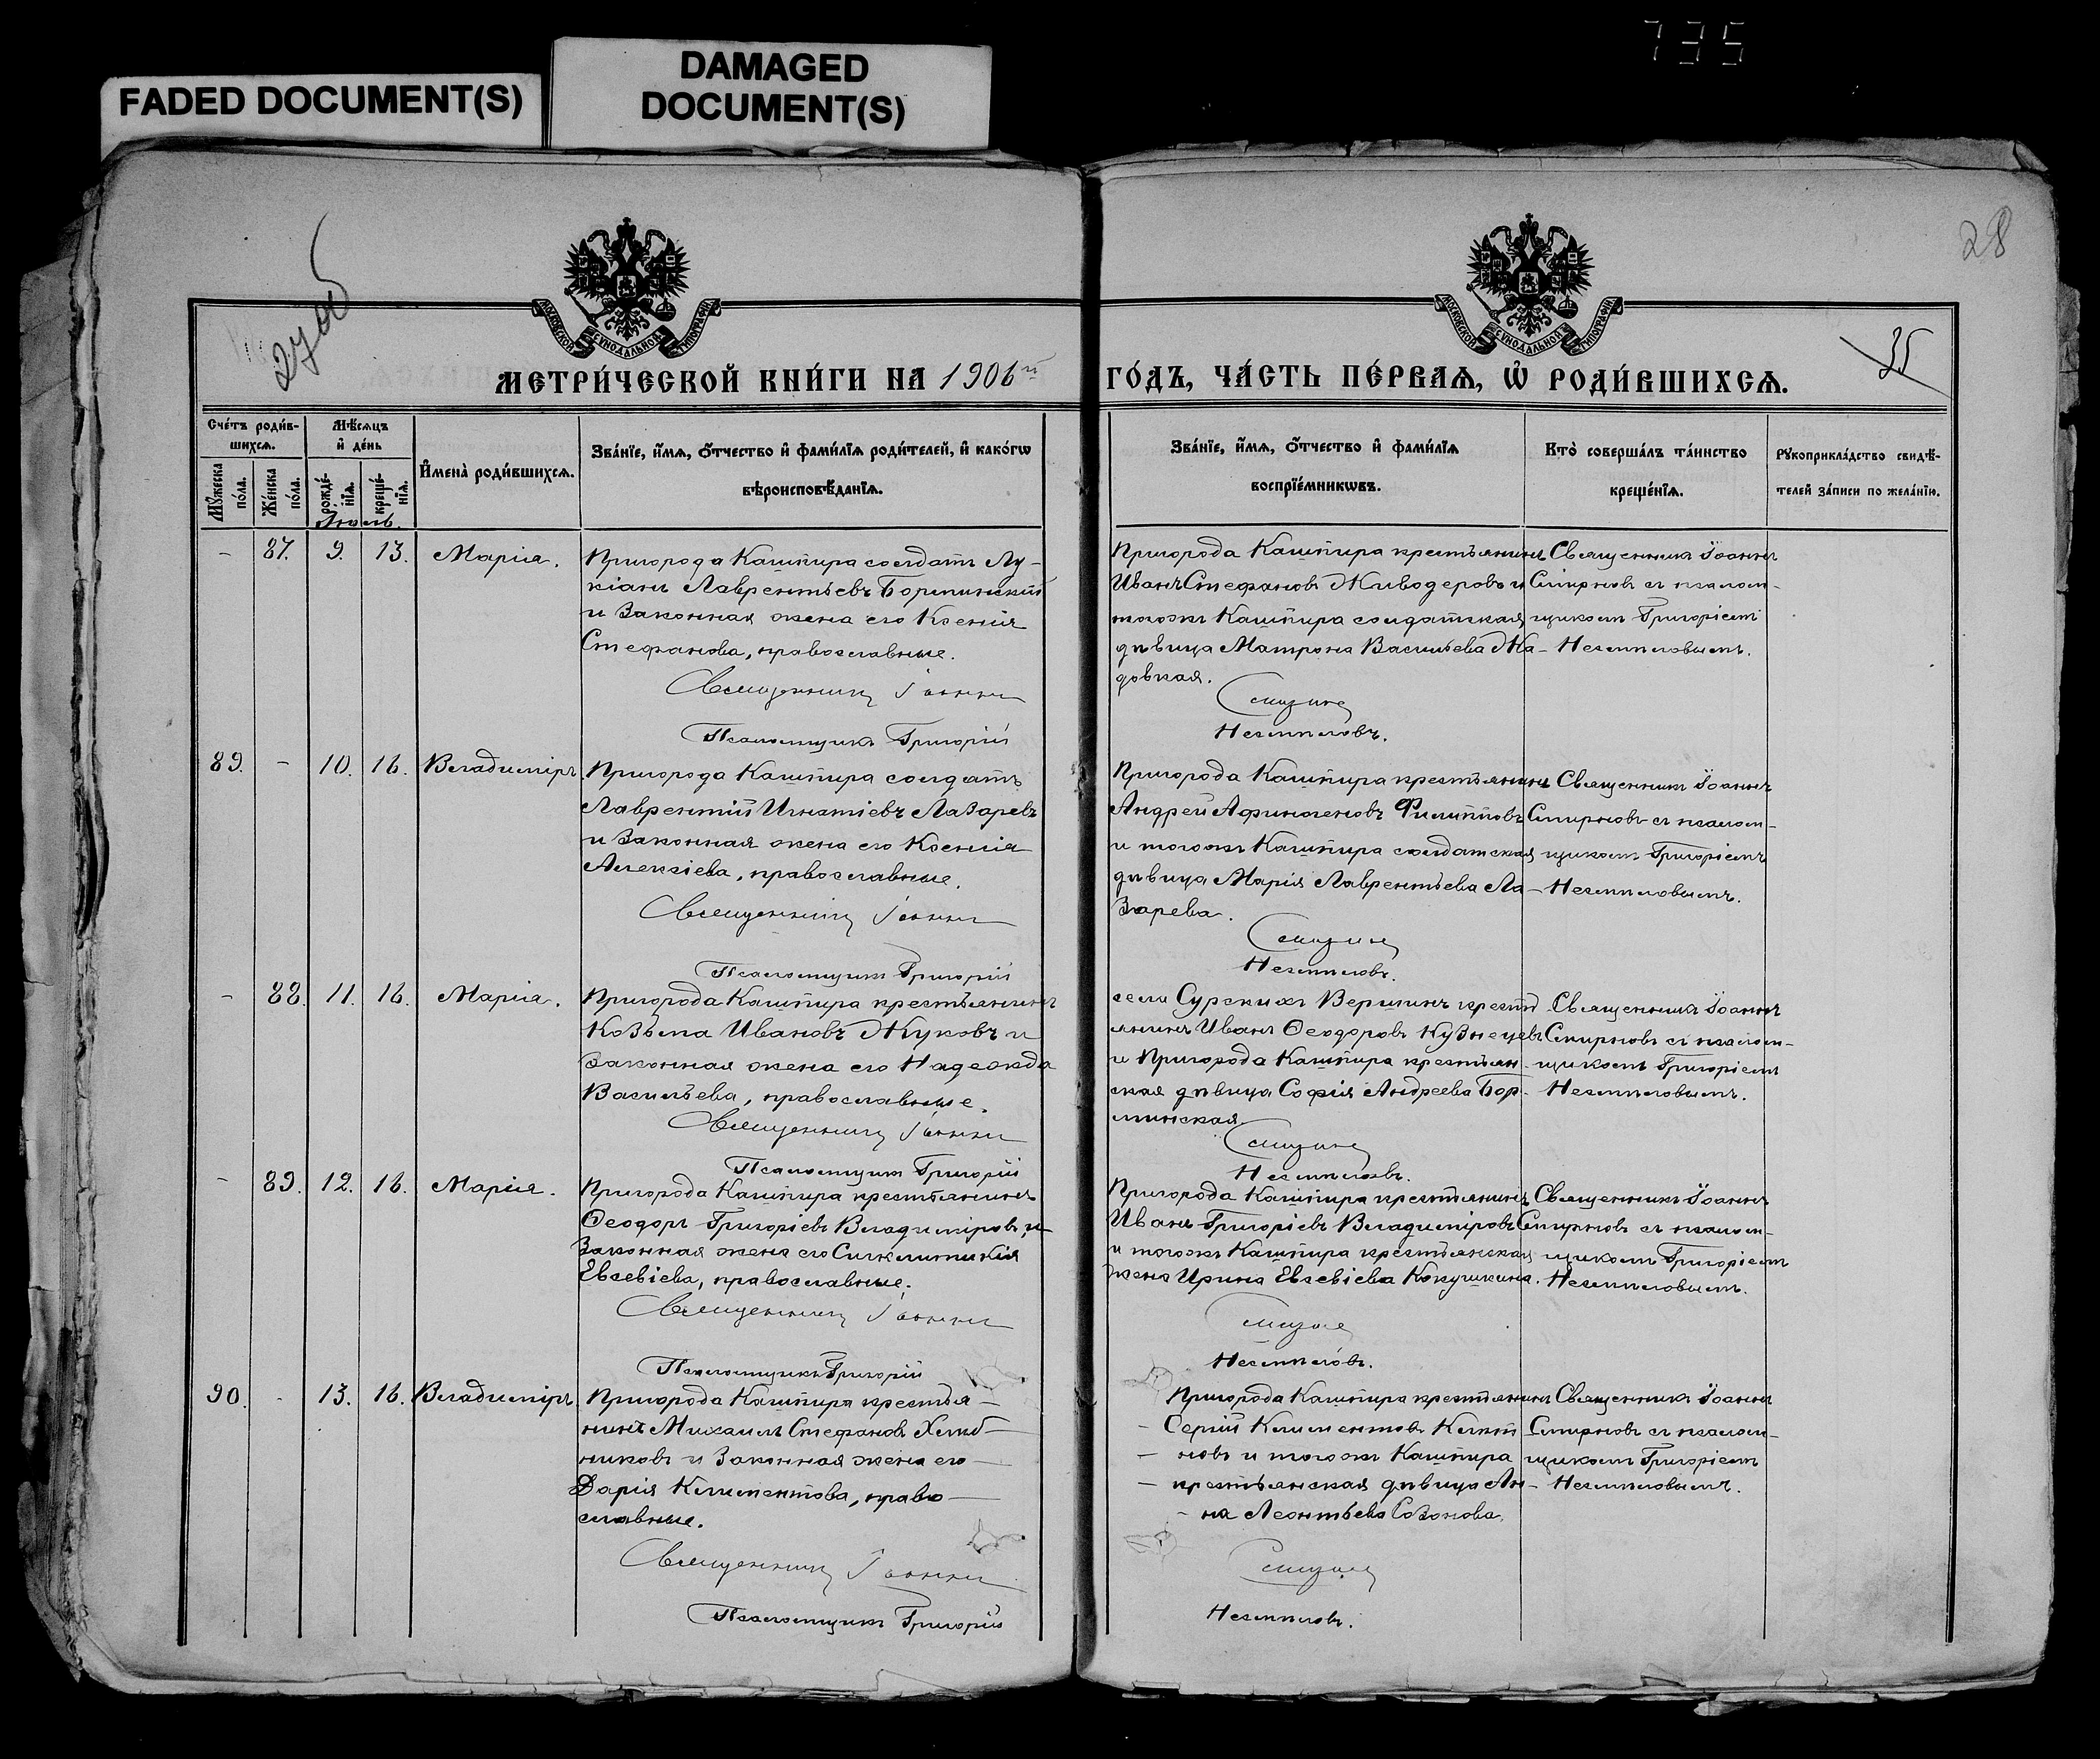 735
FADED DOCUMENT(S)
DAMAGED
DOCUMENT(S)
28
27 об
35
МОСКОВСКОЙ СѴНОДАЛЬНОЙ ТИПОГРАФІИ
МОСКОВСКОЙ СѴНОДАЛЬНОЙ ТИПОГРАФІИ
МЕТРИ́ЧЕСКОЙ КНИ́ГИ НА 1906й
ГО́ДЪ, ЧА́СТЬ ПЕ́РВАѦ, Ѡ҆ РОДИ́ВШИХСѦ.
Сче́тъ роди́в-
шихсѧ.
Мꙋ́жеска
по́ла.
Же́нска
по́ла.
Мѣ́сѧцъ
и҆ де́нь
рожде́-
нїѧ.
креще́-
нїѧ.
И҆мена̀ роди́вшихсѧ.
Зва́нїе, и҆́мѧ, ѻ҆́тчество и҆ фами́лїѧ роди́телей, и҆ како́гѡ
вѣроисповѣ́данїѧ.
Зва́нїе, и҆́мѧ, ѻ҆́тчество и҆ фами́лїѧ
воспрїе́мникѡвъ.
Кто̀ соверша́лъ та́инство
креще́нїѧ.
Рꙋкоприкла́дство свидѣ́-
телей за́писи по жела́нїю.
Іюль.
- 87. 9. 13. Марія.
Пригорода Кашпира солдатъ Лу-
кіанъ Лаврентьевъ Борминскій
и законная жена его Ксенія
Стефанова, православные.
Священникъ Іоаннъ
Псаломщикъ Григорій
Пригорода Кашпира крестьянинъ
Иванъ Стефановъ Живодеровъ и
тогожъ Кашпира солдатская
дѣвица Матрона Васильева Жа-
довкая.
Смирновъ
Несмѣловъ.
Священникъ Іоаннъ
Смирновъ съ псалом-
щикомъ Григоріемъ
Несмѣловымъ.
89. - 10. 16. Владиміръ.
Пригорода Кашпира солдатъ
Лаврентій Игнатіевъ Лазаревъ
и законная жена его Ксенія
Алексіева, православные.
Священникъ Іоаннъ
Псаломщикъ Григорій
Пригорода Кашпира крестьянинъ
Андрей Афиногеновъ Филипповъ
и тогожъ Кашпира солдатская
дѣвица Марія Лаврентьева Ла-
зарева.
Смирновъ
Несмѣловъ.
Священникъ Іоаннъ
Смирновъ съ псалом-
щикомъ Григоріемъ
Несмѣловымъ.
- 88. 11. 16. Марія.
Пригорода Кашпира крестьянинъ
Козьма Ивановъ Жуковъ и
законная жена его Надежда
Васильева, православные.
Священникъ Іоаннъ
Псаломщикъ Григорій
села Сурскихъ Вершинъ кресть
янинъ Иванъ Ѳеодоровъ Кузнецовъ
и Пригорода Кашпира крестьян-
ская дѣвица Софія Андреева Бор-
минская.
Смирновъ
Несмѣловъ.
Священникъ Іоаннъ
Смирновъ съ псалом-
щикомъ Григоріемъ
Несмѣловымъ.
- 89. 12. 16. Марія.
Пригорода Кашпира крестьянинъ
Ѳеодоръ Григоріевъ Владиміровъ и
законная жена его Сигклитикія
Евсевіева, православные.
Священникъ Іоаннъ
Псаломщикъ Григорій
Пригорода Кашпира крестьянинъ
Иванъ Григоріевъ Владиміровъ
и тогожъ Кашпира крестьянская
жена Ирина Евсевіева Кокушкина.
Смирновъ
Несмѣловъ.
Священникъ Іоаннъ
Смирновъ съ псалом-
щикомъ Григоріемъ
Несмѣловымъ.
90. - 13. 16. Владиміръ.
Пригорода Кашпира крестья-
нинъ Михаилъ Стефановъ Хлѣб-
никовъ и законная жена его
Дарія Климентова, право-
славные.
Священникъ Іоаннъ
Псаломщикъ Григорій
Пригорода Кашпира крестьянинъ
Сергій Климентовъ
новъ и тогожъ Кашпира
крестьянская дѣвица Ан-
на Леонтьева Созонова.
Смирновъ
Несмѣловъ.
Священникъ Іоаннъ
Смирновъ съ псалом-
щикомъ Григоріемъ
Несмѣловымъ.